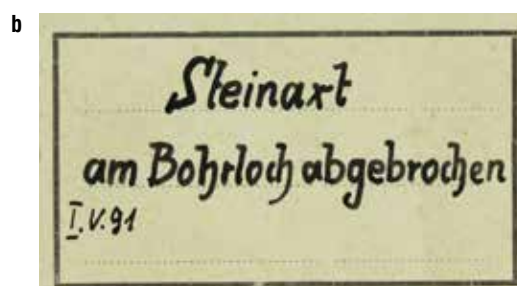 b
Steinaxt
am Bohrloch abgebrochen
I.V.91